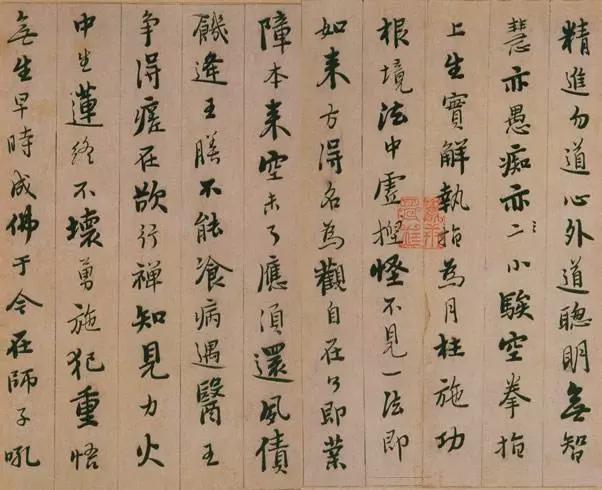 精進勿道心外道聰明無智
慧亦愚痴亦二小騃空拳指
上生實解執指為月枉施功
根境法中虛揑怪不見一法即
如来方得名為觀自在了即業
障本来空未了應須還夙債
饑逢王膳不能飡病遇醫王
争得瘥在欲行禅知見力火
中生蓮終不壞勇施犯重悟
無生早時成佛于今在師子吼